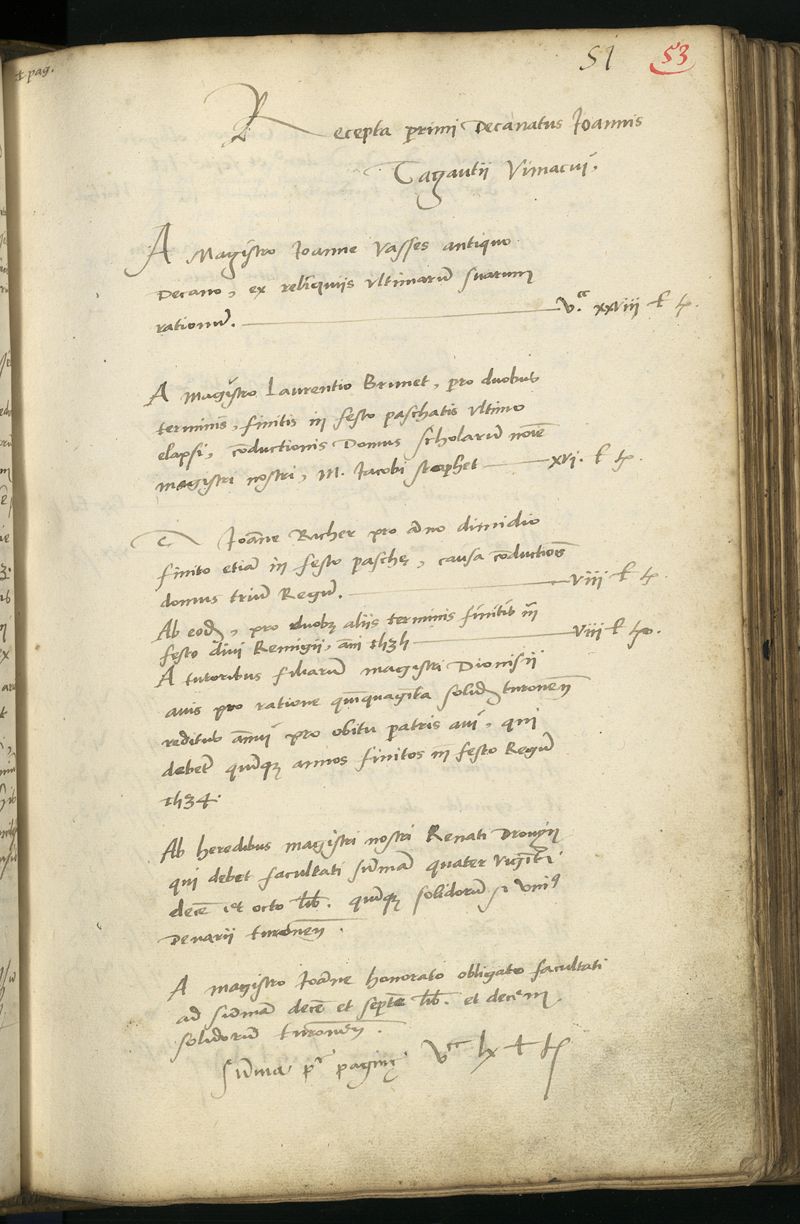 4 pag.
51 53
Recepta primi Decanatus Joannis
Tagautii Vimacui.
A Magistro Joanne Vasses antiquo
Decano, ex reliquiis ultimarū suarum
rationū. V.c xxviii ł t.
A magistro Laurentio Brunet, pro duobus
terminis, finitis in festo paschatis ultimo
elapsi, cōductionis Domus scholarū noīe
magistri nostri, M. Jacobi stephet xvi. ł t.
Joāne Richer pro āno dimidio
finito etiā in festo paschę, causa cōductiois
domus triū Regū. viii ł t.
Ab eod, pro duobȝ aliis terminis finitis in
festo divi Remigii, ani 1535 viii ł t.
A tutoribus filiarū magistri Dionisii
avis pro ratione quīquagīta solid turoneñ
reditus ānui pro obitu patris aui, qui
debet quīqȝ annos finitos in festo Regū
1534.
Ab heredibus magistri nostri Renati Drouyn
qui debet facultati sūmam quater viginti
decē et octo lib. quīqȝ solidorū et uniꝰ
Denarii turoneñ.
A magistro Joāne honorato obligato facultati
ad sūmam decē et septē lib. et decem
solidorū turoneñ.
Sūma paginę Vcc lx ł t